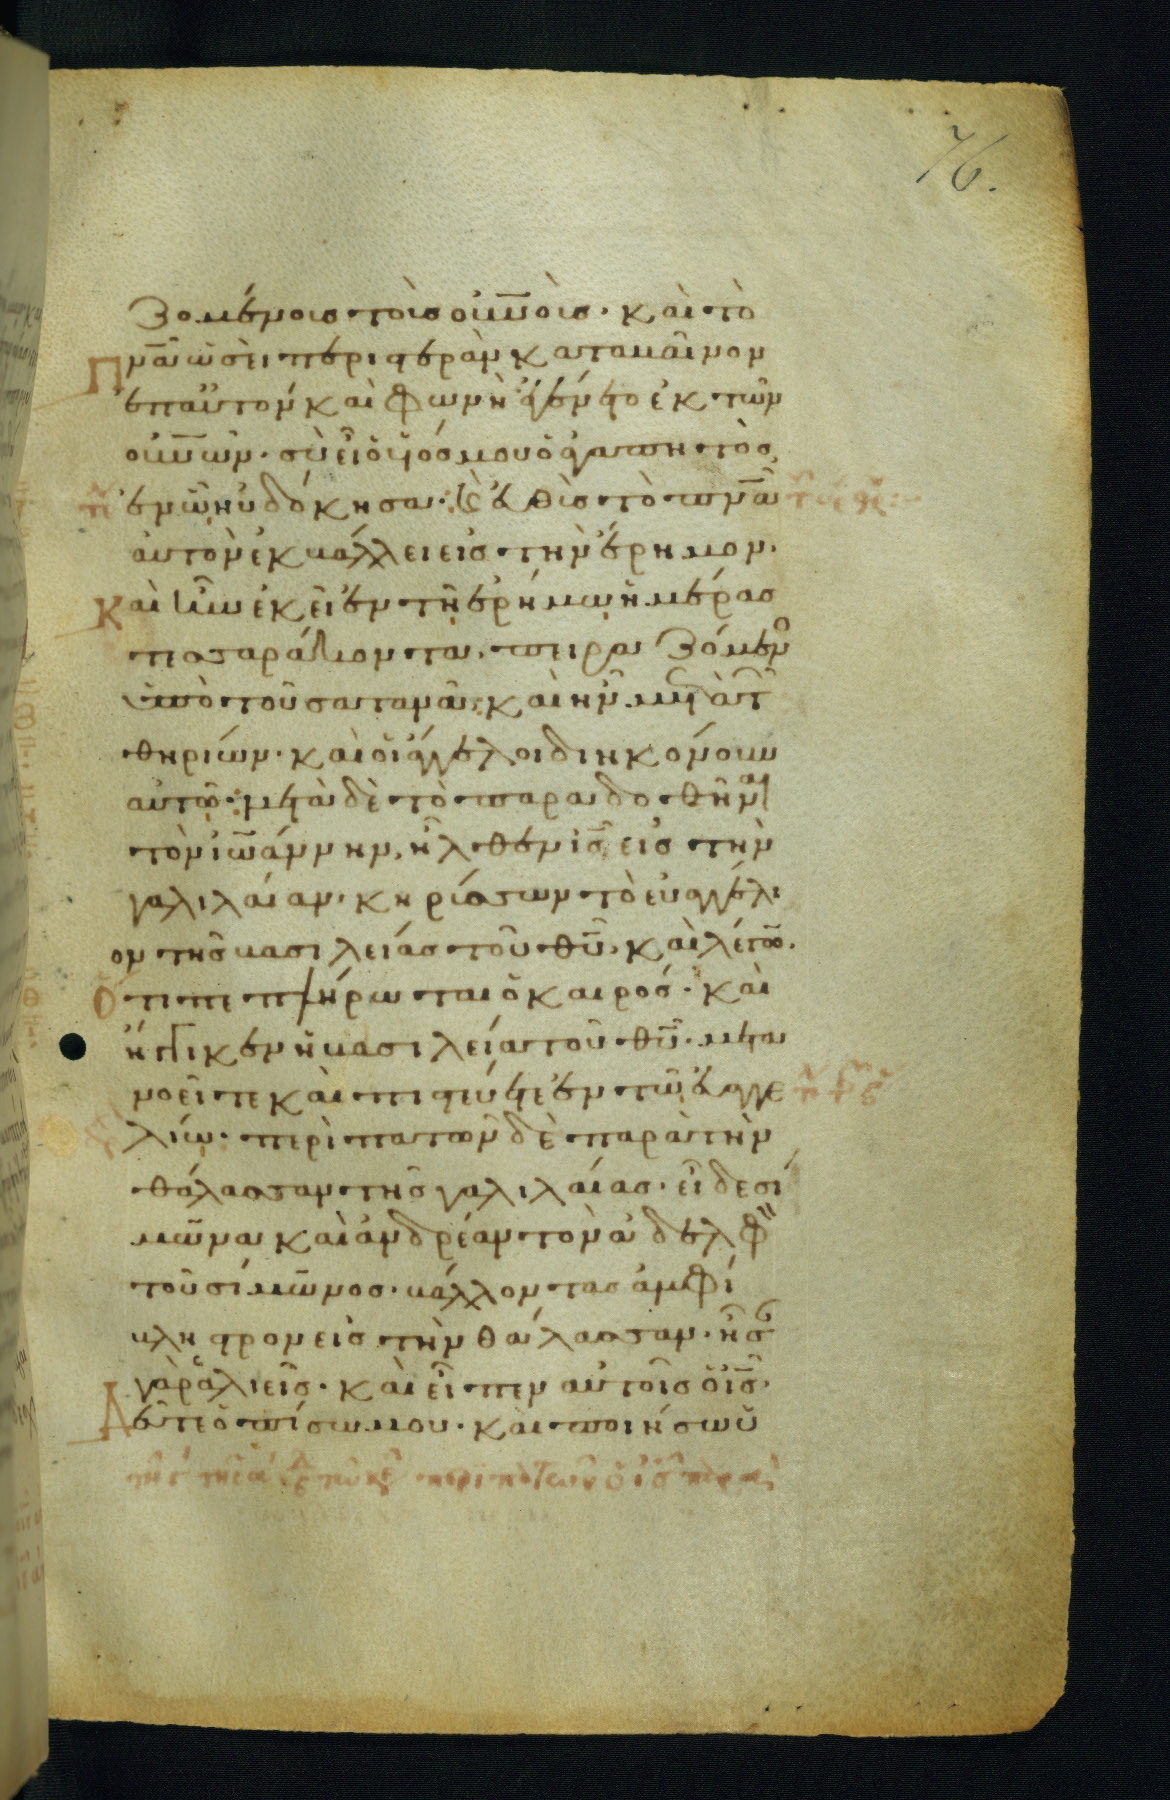 76.
ζομένους τοὺς οὐνοὺς· καὶ τὸ
πνα ὡσεὶ περιστερὰν καταβαῖνον
ἐπ αὐτόν καὶ φωνὴ ἐγένετο ἐκ τῶν
οὐνῶν· σὺ εἶ ὁ υἱός μου ὁ ἀγαπητὸς
ἐν ᾧ ηὐδόκησα· καὶ εὐθὺς τὸ πνα
αὐτὸν ἐκβάλλει εἰς τὴν ἔρημον·
Καὶ ἦν ἐκεῖ ἐν τῇ ἐρήμῳ ἡμέρας
τεσσαράκοντα, πειραζόμενο
ὑπὸ τοῦ σατανᾶ· καὶ ἦν μετὰ τῶν
θηρίων· καὶ οἱ ἄγγελοι διηκόνουν
αὐτῷ· μετὰ δὲ τὸ παραδοθῆναι
τὸν ἰωάννην, ἦλθεν ὁ ις εἰς τὴν
γαλιλαίαν· κηρύσσων τὸ εὐαγγέλι
ον τῆς βασιλείας τοῦ θυ, καὶ λέγων·
Ὅτι πεπλήρωται ὁ καιρός· καὶ
ἤγγικεν ἡ βασιλεία τοῦ θυ· μετα
νοεῖτε καὶ πιστεύετε ἐν τῷ εὐαγγε
λίῳ· περιπατῶν δὲ παρὰ τὴν
θάλασσαν τῆς γαλιλαίας· εἶδε σί
μωνα καὶ ἀνδρέαν τὸν ἀδελφὸν
τοῦ σίμωνος· βάλλοντας ἀμφί
βληστρον εἰς τὴν θάλασσαν· ἦσαν
γὰρ ἁλιεῖς· καὶ εἶπεν αὐτοῖς ὁ ις·
Δεῦτε ὀπίσω μου· καὶ ποιήσω ὑ